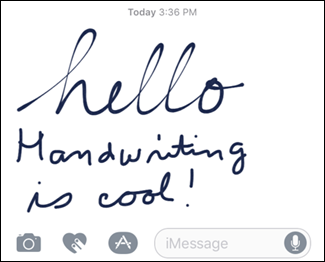 Today 3:36 PM
hello
Handwriting
is cool!
iMessage